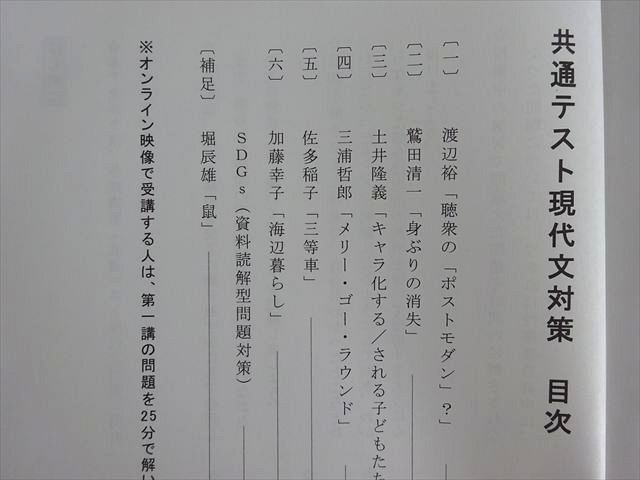 共通テスト現代文対策　目次
〔一〕　渡辺裕「聴衆の「ポストモダン」？
〔二〕　鷲田清一「身ぶりの消失」
〔三〕　土井隆義「キャラ化する／される子どもた
〔四〕　三浦哲郎「メリー・ゴー・ラウンド」
〔五〕　佐多稲子「三等車」
〔六〕　加藤幸子「海辺暮らし」
ＳＤＧｓ（資料読解型問題対策）
〔補足〕　堀辰雄「鼠」
※オンライン映像で受講する人は、第一講の問題を25分で解い